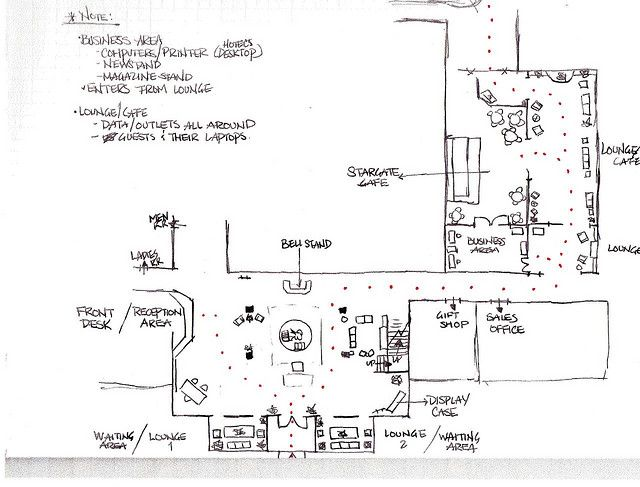 * NOTE:
• BUSINESS AREA
- COMPUTERS/PRINTER (HOTEL'S DESKTOP)
- NEWSTAND
- MAGAZINE STAND
• ENTERS FROM LOUNGE
• LOUNGE/CAFE
- DATA/OUTLETS ALL AROUND
- GUESTS & THEIR LAPTOPS.
LOUNGE/
CAFE
STARGATE
CAFE
MEN
RR
BELL STAND
BUSINESS
AREA
LOUNGE
LADIES
RR
FRONT
DESK / RECEPTION
AREA
GIFT
SHOP
SALES
OFFICE
UP
UP
DISPLAY
CASE
WAITING
AREA / LOUNGE
1
LOUNGE
2 / WAITING
AREA